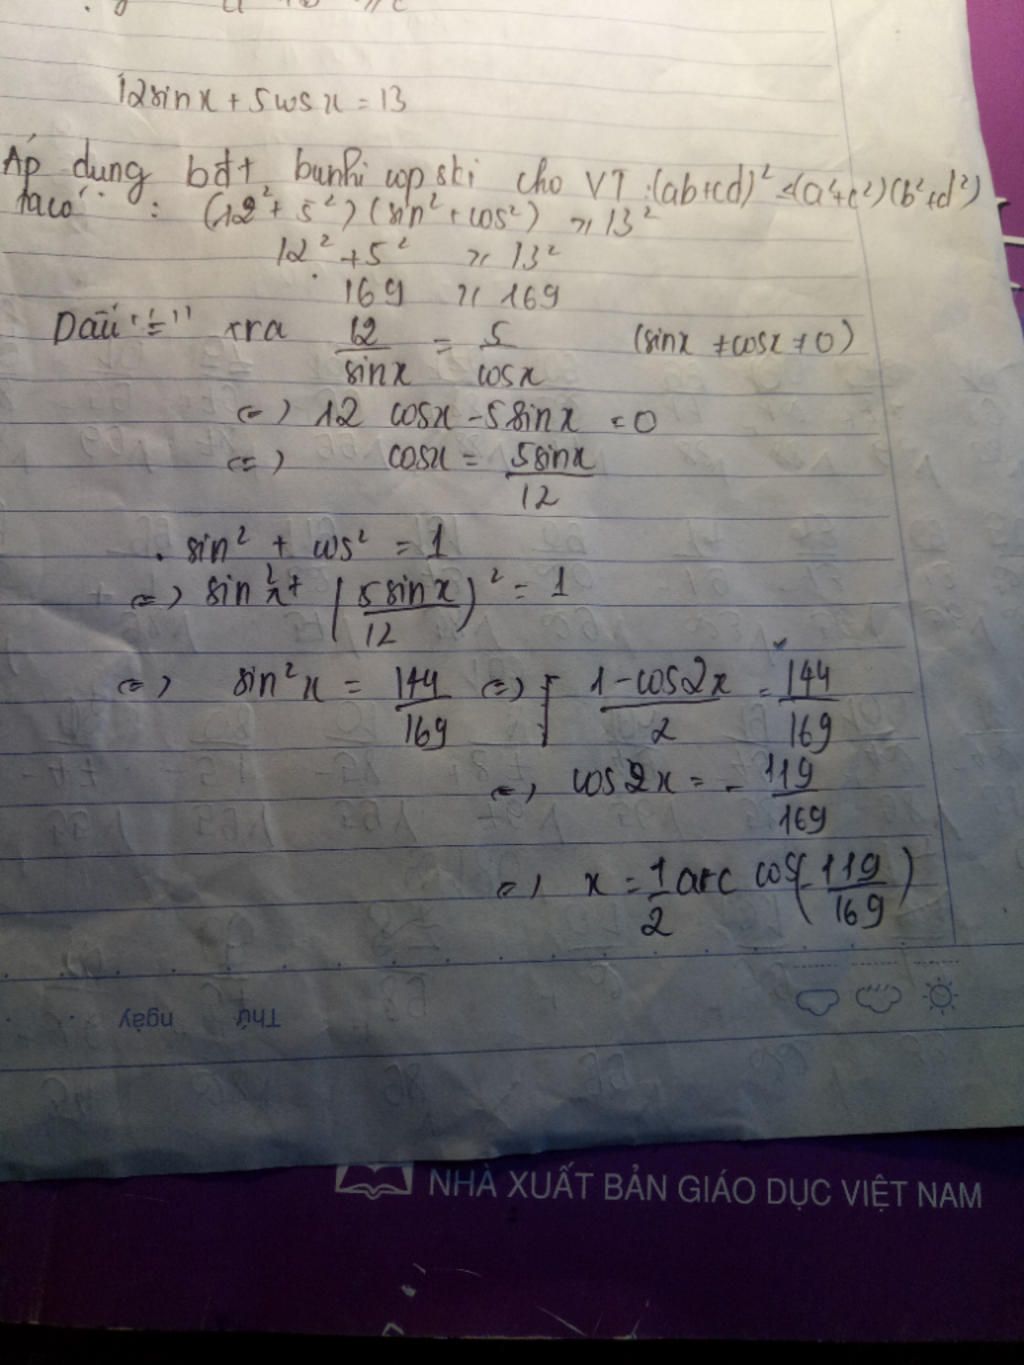 12sinx + 5cosx = 13
Áp dụng bđt bunhi cop ski cho VT : (ab+cd)² ≤ (a²+c²)(b²+d²)
ta có : (12² + 5²)(sin² + cos²) ≥ 13²
12² + 5² ≥ 13²
169 ≥ 169
Dấu "=" xra 12/sinx = 5/cosx (sinx ≠ cosx ≠ 0)
<=> 12 cosx - 5sinx = 0
<=> cosx = 5sinx/12
. sin² + cos² = 1
<=> sin²x + (5sinx/12)² = 1
<=> sin²x = 144/169 <=> [ 1-cos2x/2 = 144/169
<=> cos2x = -119/169
<=> x = 1/2 arc cos(-119/169)
Thứ ngày
NHÀ XUẤT BẢN GIÁO DỤC VIỆT NAM